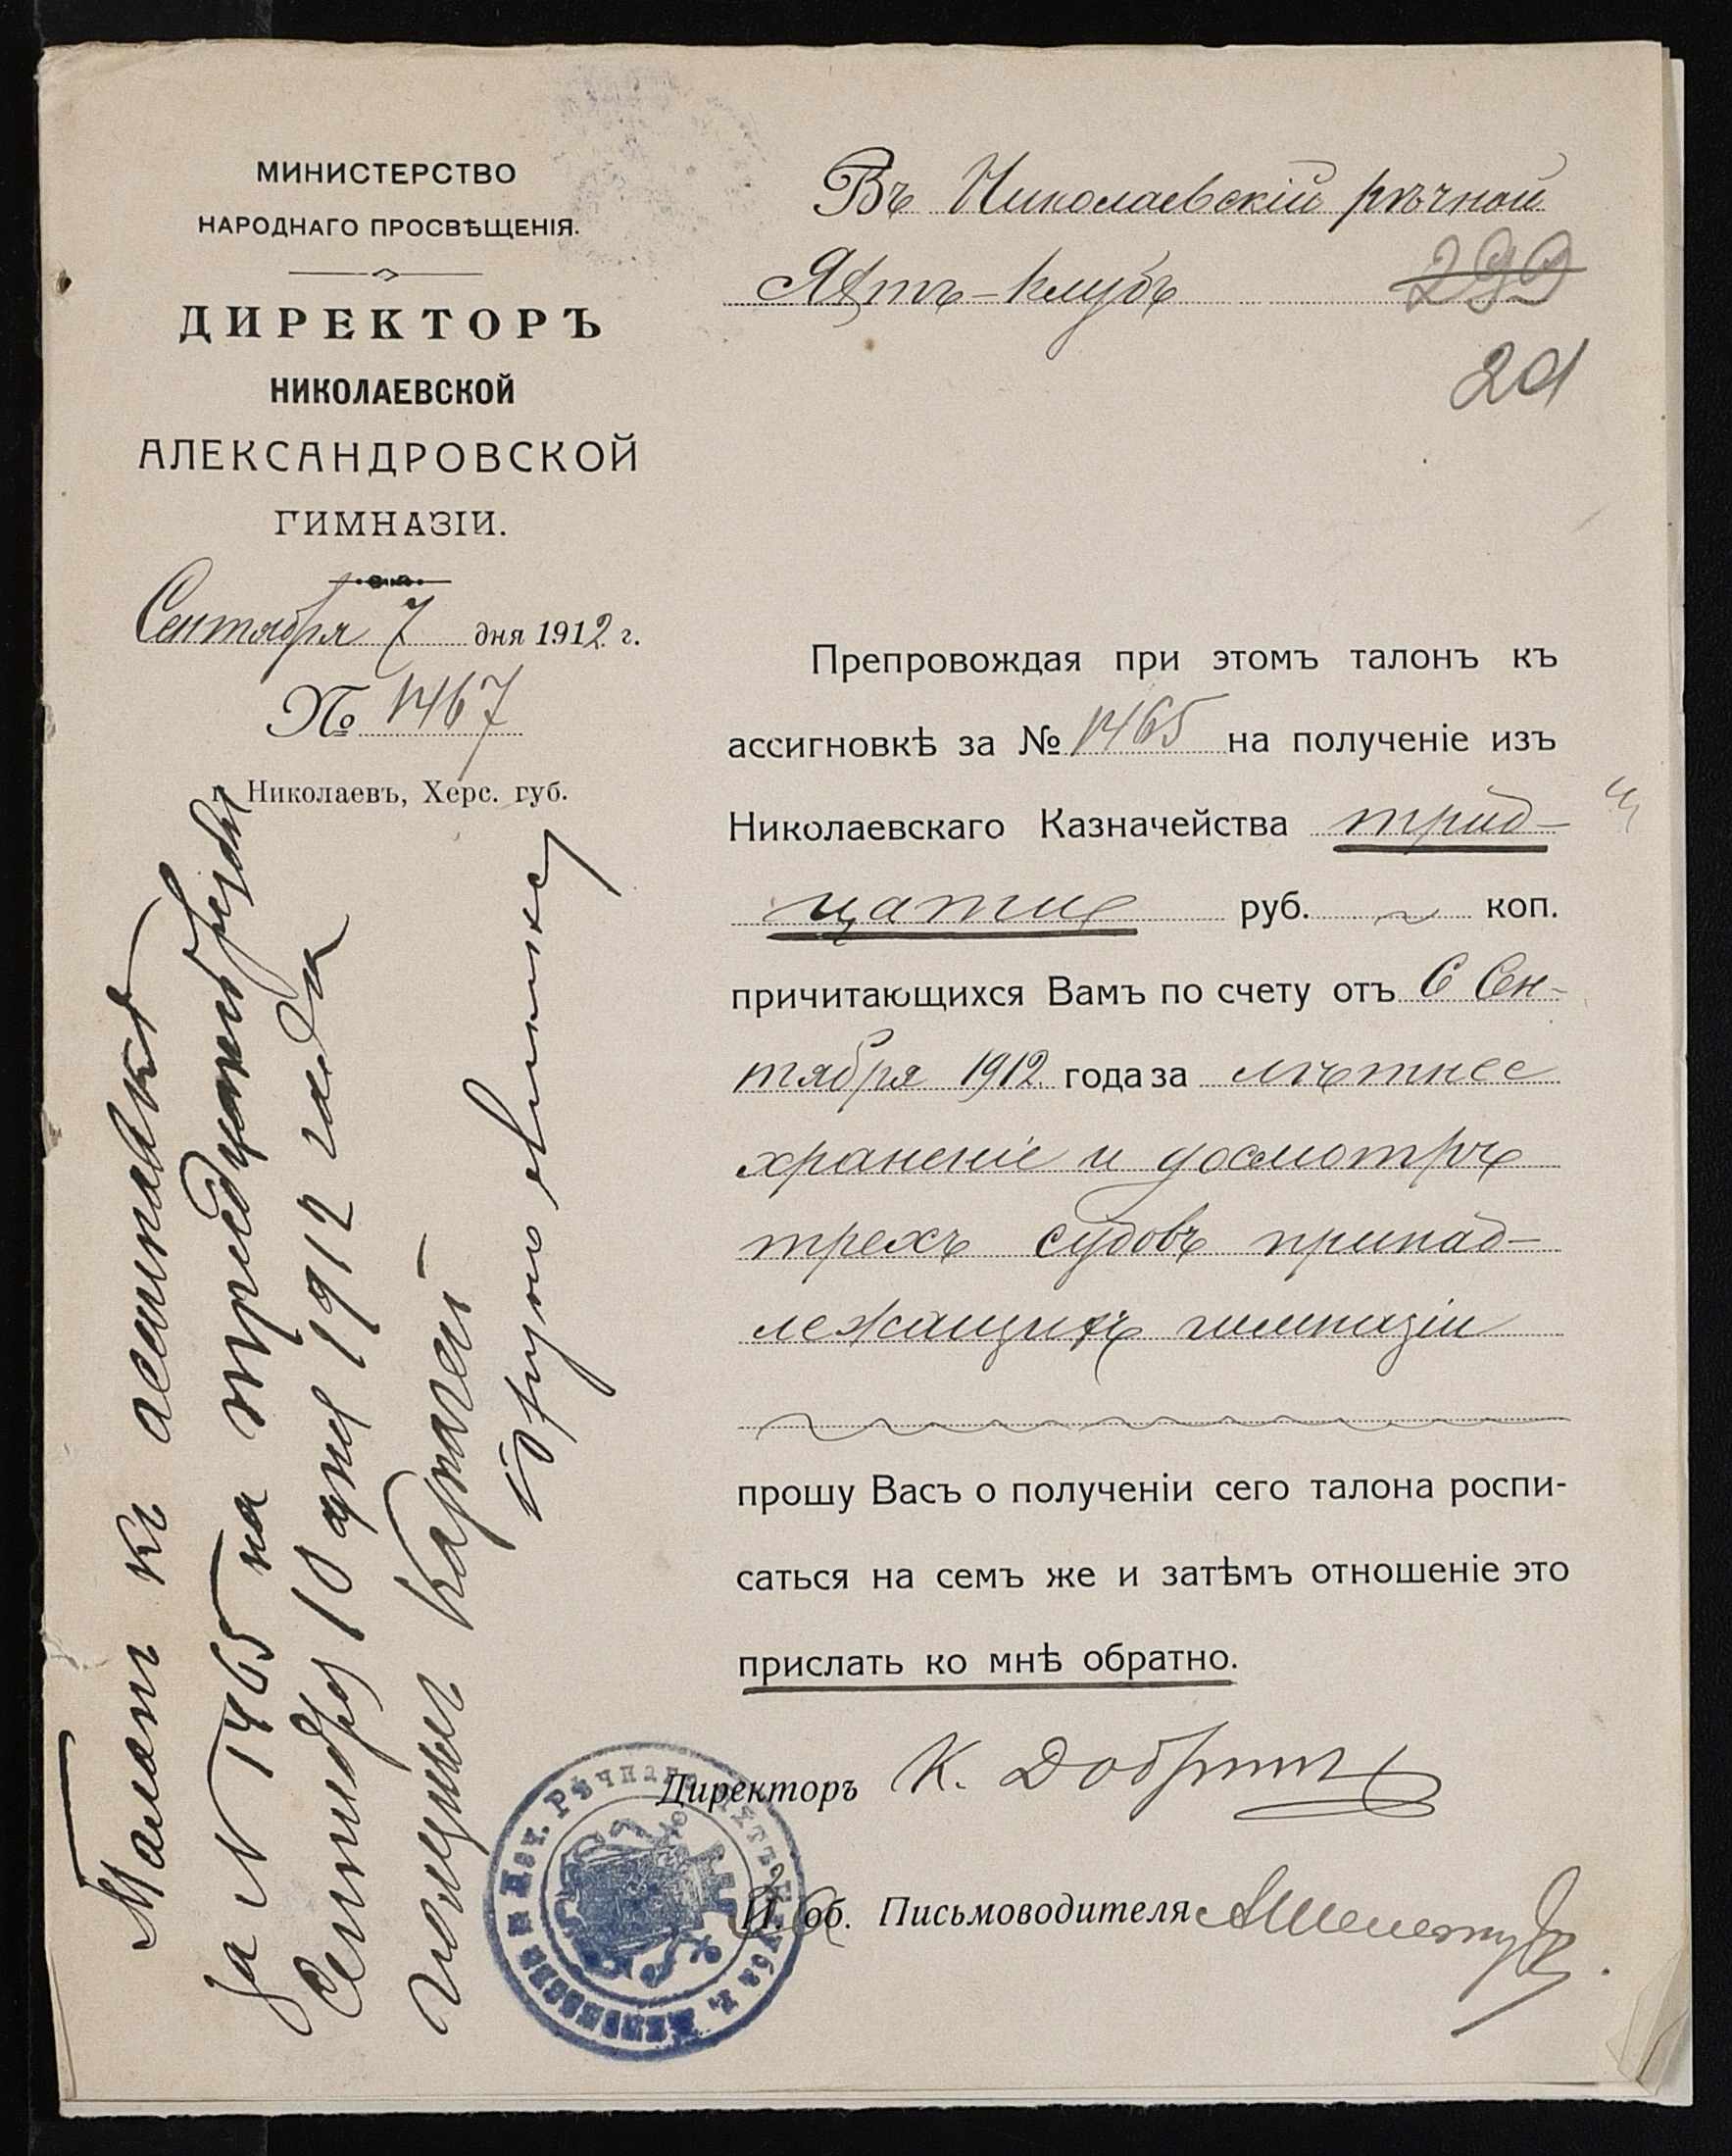 МИНИСТЕРСТВО
НАРОДНАГО ПРОСВѢЩЕНІЯ.
ДИРЕКТОРЪ
НИКОЛАЕВСКОЙ
АЛЕКСАНДРОВСКОЙ
ГИМНАЗІИ.
Сентября 7 дня 1912 г.
№ 1467
г. Николаевъ, Херс. губ.
Въ Николаевскій рѣчной
Яхтъ-клубъ
299
201
Препровождая при этомъ талонъ къ
ассигновкѣ за № 1465 на полученіе изъ
Николаевскаго Казначейства трид-
цати руб. ~ коп.
причитающихся Вамъ по счету отъ 6 Сен-
тября 1912 года за лѣтнее
храненіе и досмотръ
трехъ судовъ принад-
лежащихъ гимназіи
прошу Васъ о полученіи сего талона роспи-
саться на семъ же и затѣмъ отношеніе это
прислать ко мнѣ обратно.
Директоръ К. Добрын
И. об. Письмоводителя
Талонъ къ ассигновкѣ
за № 1465 на тридцать рублей
Сентября 10 дня 1912 года
получилъ
Рѣчнаго Яхтъ-Клуба г. Николаева